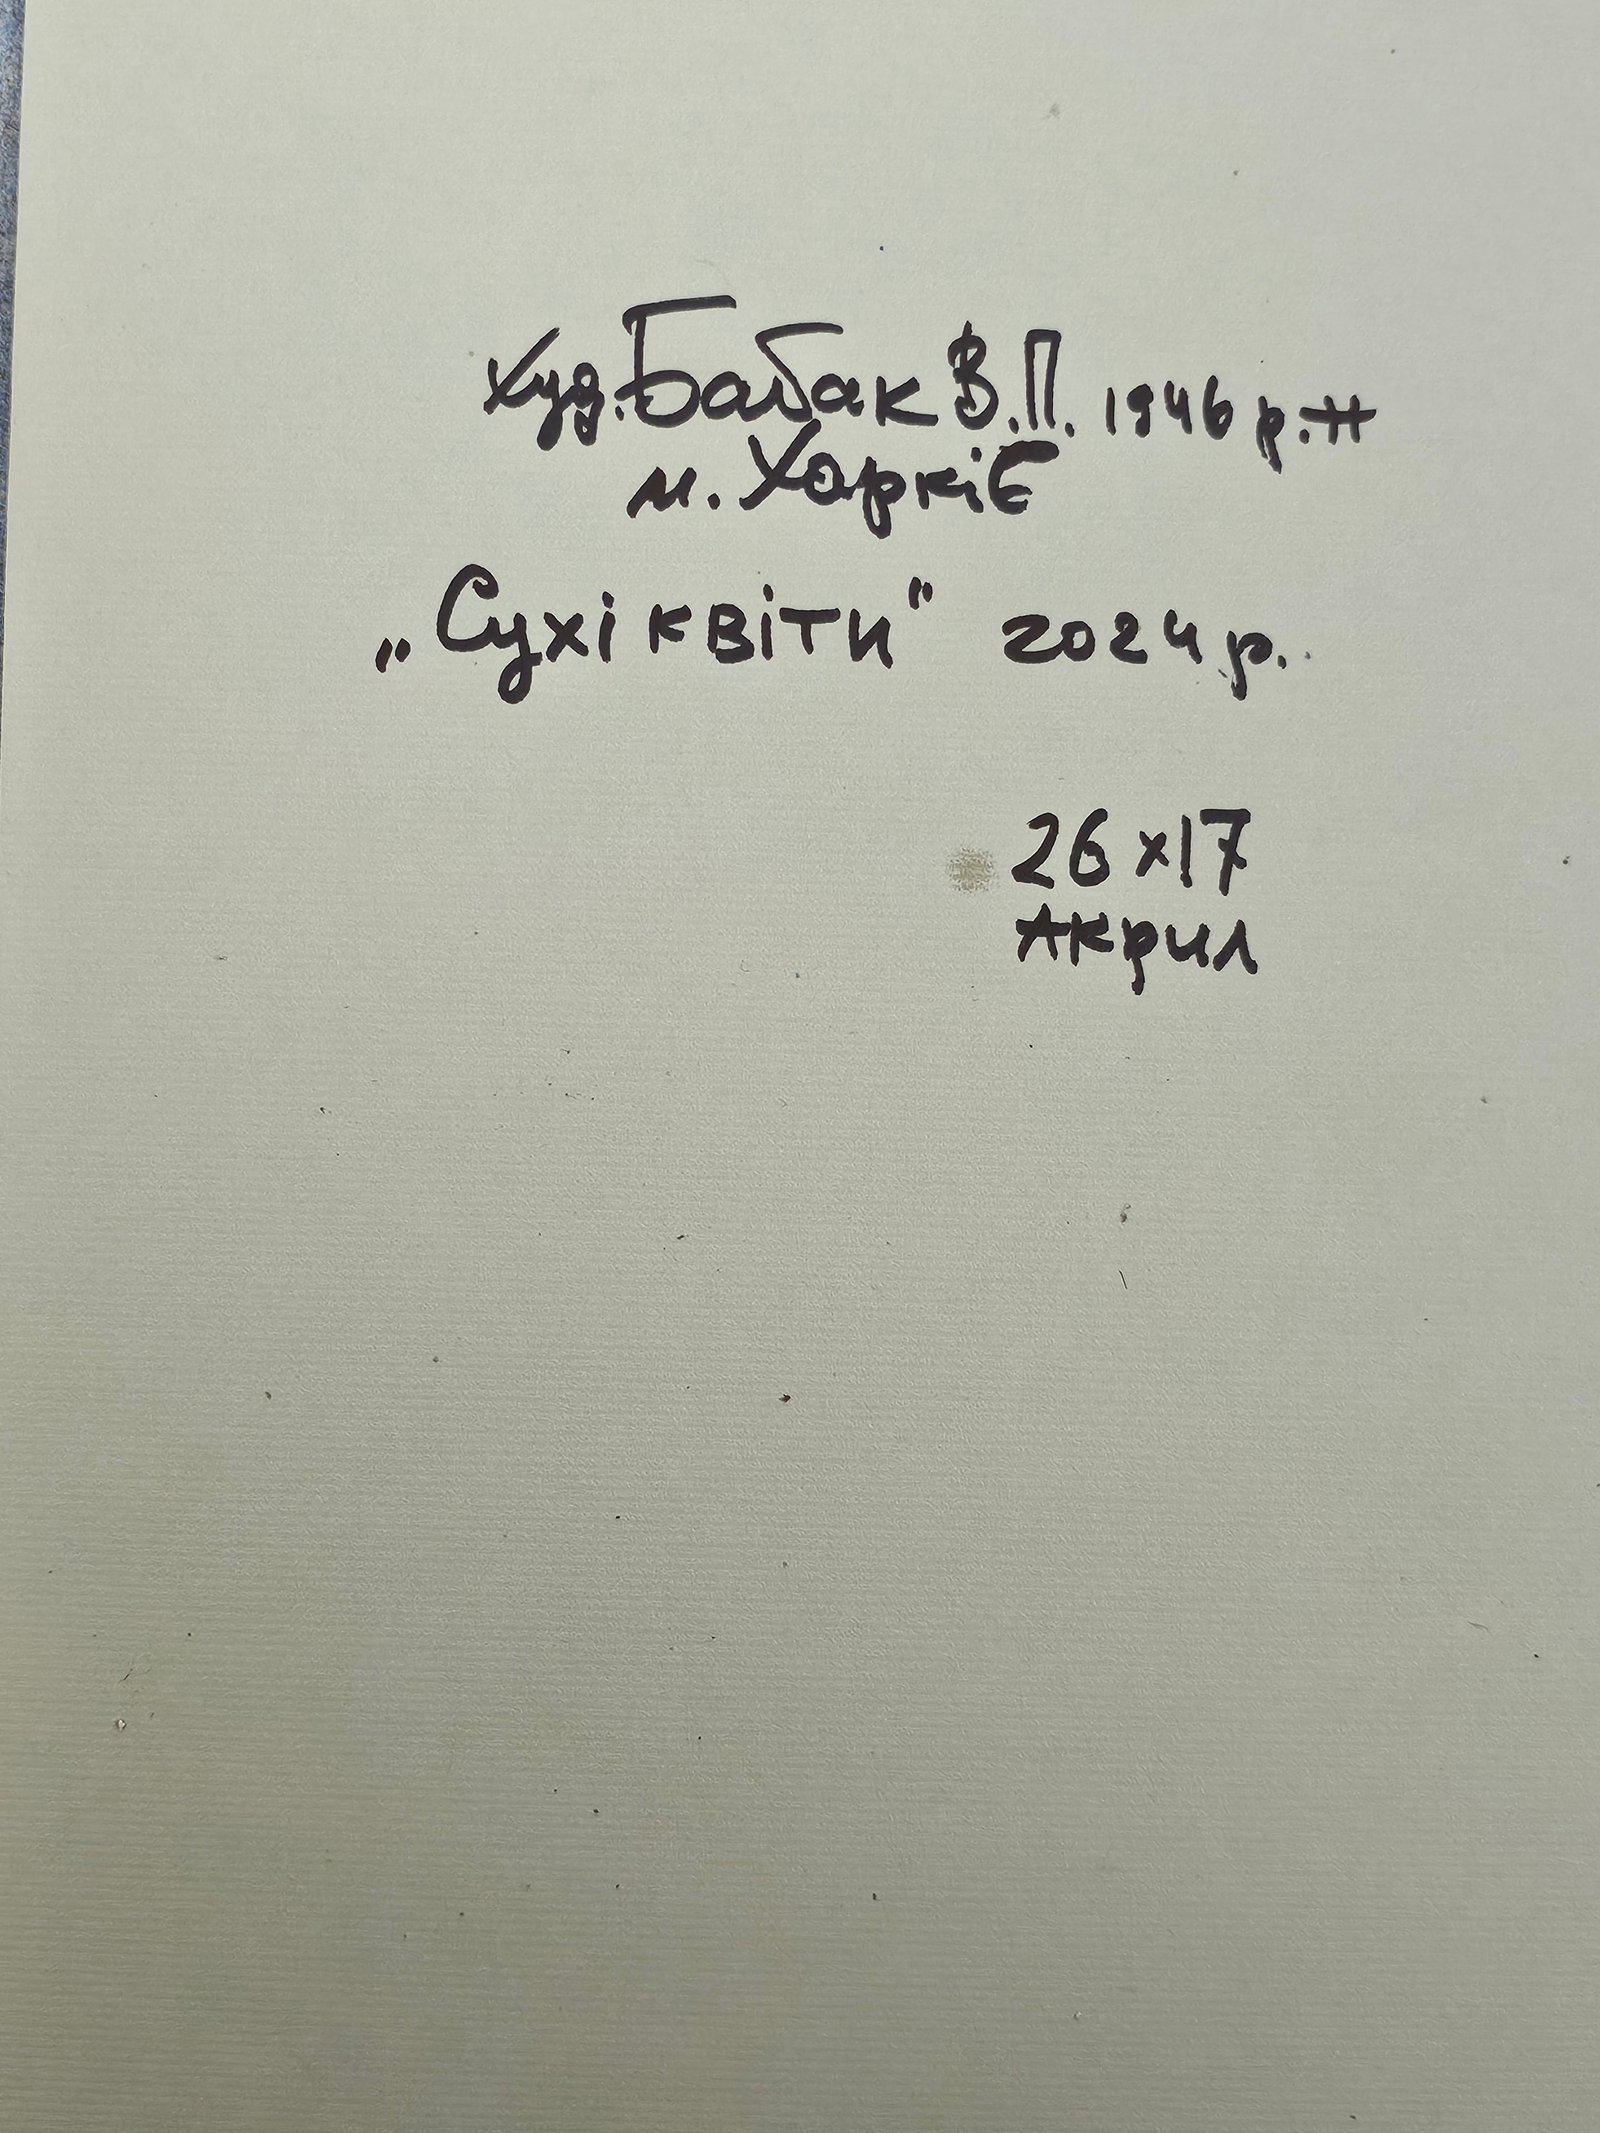 худ. Бабак В.П. 1946 р.н
м. Харків
„Сухі квіти" 2024 р.
26 х 17
Акрил